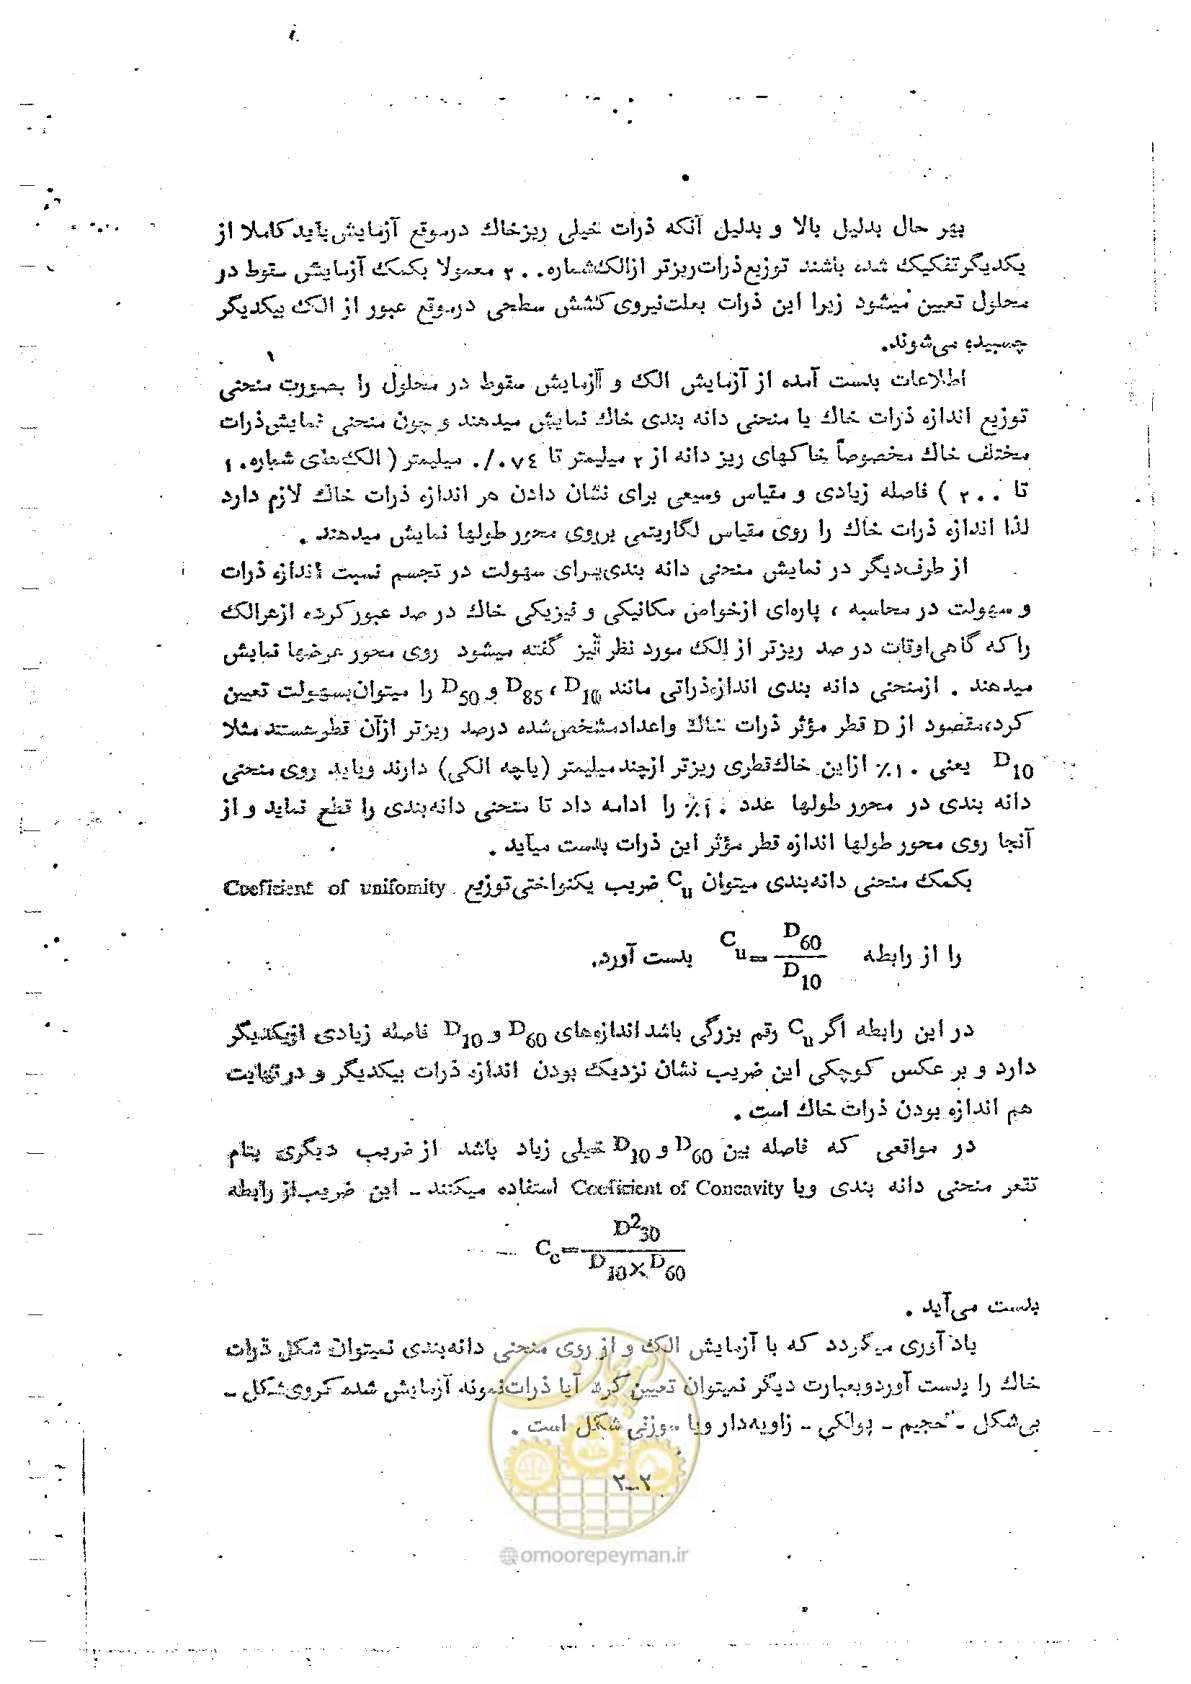 بهر حال بدلیل بالا و بدلیل آنکه ذرات خیلی ریزخاک درموقع آزمایش باید کاملا از
یکدیگر تفکیک شده باشند توزیع ذرات ریزتر ازالک شماره ۲۰۰ معمولا بکمک آزمایش سقوط در
محلول تعیین میشود زیرا این ذرات بعلت نیروی کشش سطحی درموقع عبور از الک بیکدیگر
چسبیده می‌شوند.
اطلاعات بدست آمده از آزمایش الک و آزمایش سقوط در محلول را بصورت منحنی
توزیع اندازه ذرات خاک یا منحنی دانه بندی خاک نمایش میدهند و چون منحنی نمایش ذرات
مختلف خاک مخصوصاً خاکهای ریز دانه از ۲ میلیمتر تا ۰/۰۷۴ میلیمتر ( الک‌های شماره ۱۰
تا ۲۰۰ ) فاصله زیادی و مقیاس وسیعی برای نشان دادن هر اندازه ذرات خاک لازم دارد
لذا اندازه ذرات خاک را روی مقیاس لگاریتمی برروی محور طولها نمایش میدهند .
از طرف دیگر در نمایش منحنی دانه بندی برای سهولت در تجسم نسبت اندازه ذرات
و سهولت در محاسبه ، پاره‌ای ازخواص مکانیکی و فیزیکی خاک در صد عبور کرده ازهرالک
را که گاهی اوقات در صد ریزتر از الک مورد نظر نیز گفته میشود روی محور عرضها نمایش
میدهند . ازمنحنی دانه بندی اندازه ذراتی مانند D10 ، D85 و D50 را میتوان بسهولت تعیین
کرد، مقصود از D قطر مؤثر ذرات خاک واعداد مشخص شده درصد ریزتر ازآن قطر هستند مثلا
D10 یعنی ۱۰٪ ازاین خاک قطری ریزتر ازچند میلیمتر (یا چه الکی) دارند و باید روی منحنی
دانه بندی در محور طولها عدد ۱۰٪ را ادامه داد تا منحنی دانه‌بندی را قطع نماید و از
آنجا روی محور طولها اندازه قطر مؤثر این ذرات بدست میاید .
بکمک منحنی دانه‌بندی میتوان Cu ضریب یکنواختی توزیع Coeficient of unifomity
را از رابطه Cu = D60 / D10 بدست آورد.
در این رابطه اگر Cu رقم بزرگی باشد اندازه‌های D60 و D10 فاصله زیادی ازیکدیگر
دارد و بر عکس کوچکی این ضریب نشان نزدیک بودن اندازه ذرات بیکدیگر و در نهایت
هم اندازه بودن ذرات خاک است .
در مواقعی که فاصله بین D60 و D10 خیلی زیاد باشد از ضریب دیگری بنام
تقعر منحنی دانه بندی ویا Coeficient of Concavity استفاده میکنند ـ این ضریب از رابطه
Cc = D²30 / D10 × D60
بدست می‌آید .
یاد آوری میگردد که با آزمایش الک و از روی منحنی دانه‌بندی نمیتوان شکل ذرات
خاک را بدست آورد وبعبارت دیگر نمیتوان تعیین کرد آیا ذرات نمونه آزمایش شده کروی شکل ـ
بی‌شکل ـ حجیم ـ پولکی ـ زاویه‌دار ویا سوزنی شکل است .
۲ـ۲
امور پیمان
@omoorepeyman.ir